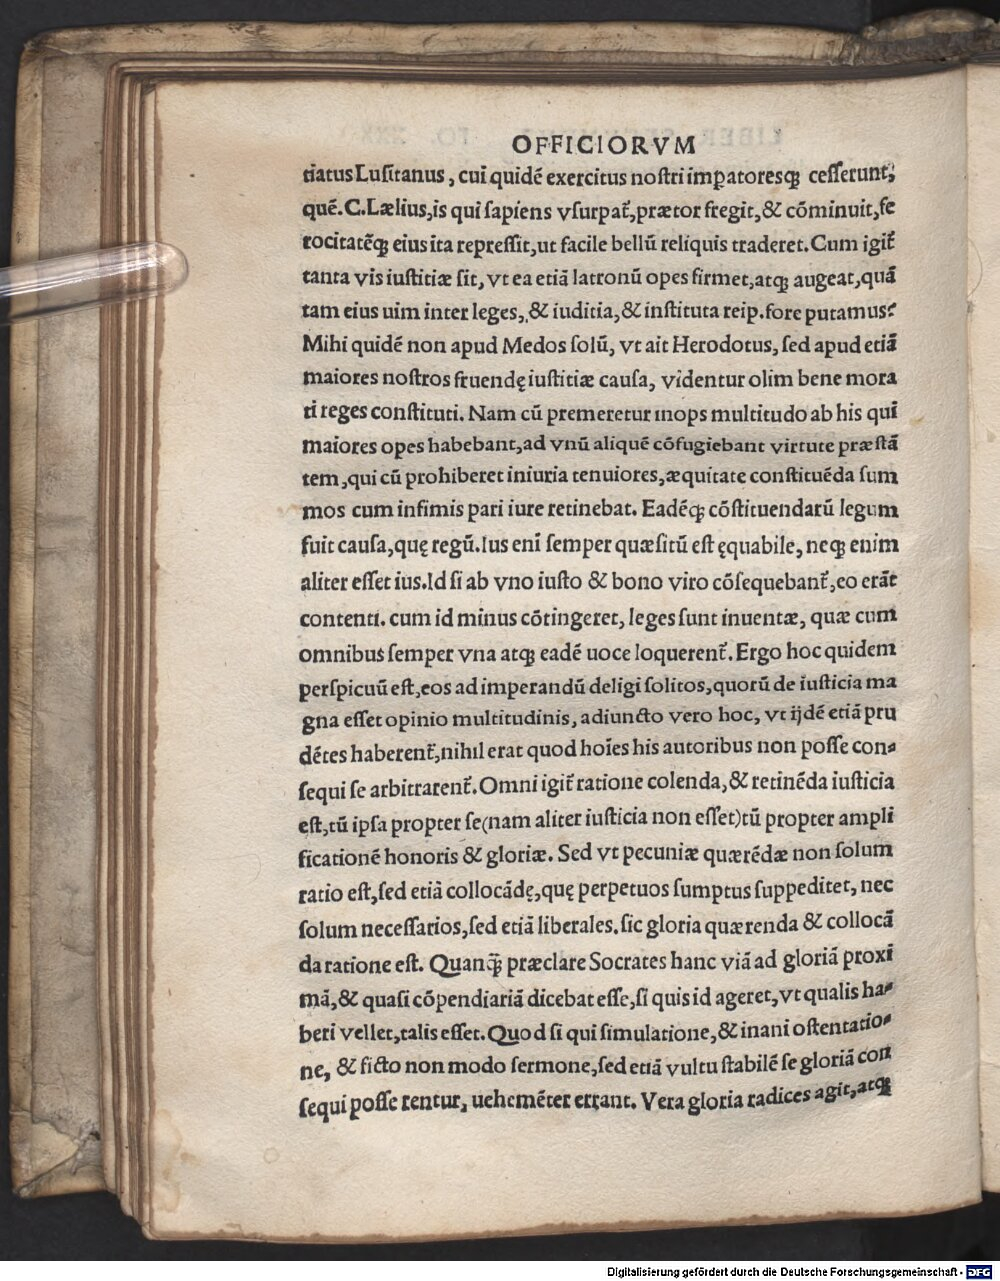 OFFICIORVM
tiatus Luſitanus, cui quidē exercitus noſtri imꝑatoresq; ceſſerunt,
quē. C. Lælius, is qui ſapiens vſurpat̄, prætor fregit, & cōminuit, fe
rocitatēq; eius ita repreſſit, ut facile bellū reliquis traderet. Cum igit̄
tanta vis iuſtitiæ ſit, vt ea etiā latronū opes firmet, atq; augeat, quā
tam eius uim inter leges, & iuditia, & inſtituta reip. fore putamus?
Mihi quidē non apud Medos ſolū, vt ait Herodotus, ſed apud etiā
maiores noſtros fruendę iuſtitiæ cauſa, videntur olim bene mora
ti reges conſtituti. Nam cū premeretur inops multitudo ab his qui
maiores opes habebant, ad vnū aliquē cōfugiebant virtute præſtā
tem, qui cū prohiberet iniuria tenuiores, æquitate conſtituēda ſum
mos cum infimis pari iure retinebat. Eadēq; cōſtituendarū legum
fuit cauſa, quę regū. Ius eni ſemper quæſitū eſt ęquabile, neq; enim
aliter eſſet ius. Id ſi ab vno iuſto & bono viro cōſequebant̄, eo erāt
contenti. cum id minus cōtingeret, leges ſunt inuentæ, quæ cum
omnibus ſemper vna atq; eadē uoce loquerent̄. Ergo hoc quidem
perſpicuū eſt, eos ad imperandū deligi ſolitos, quorū de iuſticia ma
gna eſſet opinio multitudinis, adiuncto vero hoc, vt ijdē etiā pru
dētes haberent̄, nihil erat quod hoīes his autoribus non poſſe con-
ſequi ſe arbitrarent̄. Omni igit̄ ratione colenda, & retinēda iuſticia
eſt, tū ipſa propter ſe (nam aliter iuſticia non eſſet) tū propter ampli
ficationē honoris & gloriæ. Sed vt pecuniæ quærēdæ non ſolum
ratio eſt, ſed etiā collocādę, quę perpetuos ſumptus ſuppeditet, nec
ſolum neceſſarios, ſed etiā liberales, ſic gloria quærenda & collocā
da ratione eſt. Quanq̄ præclare Socrates hanc viā ad gloriā proxi
mā, & quaſi cōpendiariā dicebat eſſe, ſi quis id ageret, vt qualis ha-
beri vellet, talis eſſet. Quod ſi qui ſimulatione, & inani oſtentatio-
ne, & ficto non modo ſermone, ſed etiā vultu ſtabilē ſe gloriā con
ſequi poſſe rentur, uehemēter errant. Vera gloria radices agit, atq;
Digitalisierung gefördert durch die Deutsche Forschungsgemeinschaft - DFG